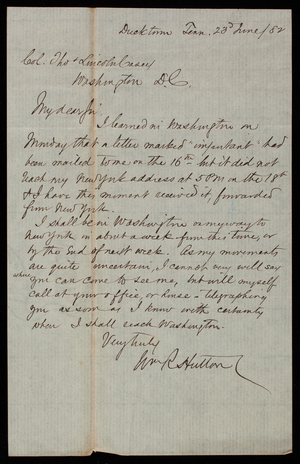 Ducktown Tenn. 23d June/82
Col. Thos Lincoln Casey
Washington D.C.
My dear Sir
I learned in Washington on
Monday that a letter marked "important" had
been mailed to me on the 16th but it did not
reach my New York address at 5 P.M. on the 18th
& I have this moment received it, forwarded
from New York.
I shall be in Washington on my way to
New York in about a week from this time, or
by the End of next week. As my movements
are quite uncertain, I cannot very well say
when
you can come to see me, but will myself
call at your office, or house - telegraphing
you as soon as I know with certainty
when I shall reach Washington.
Very truly
Wm R Hutton